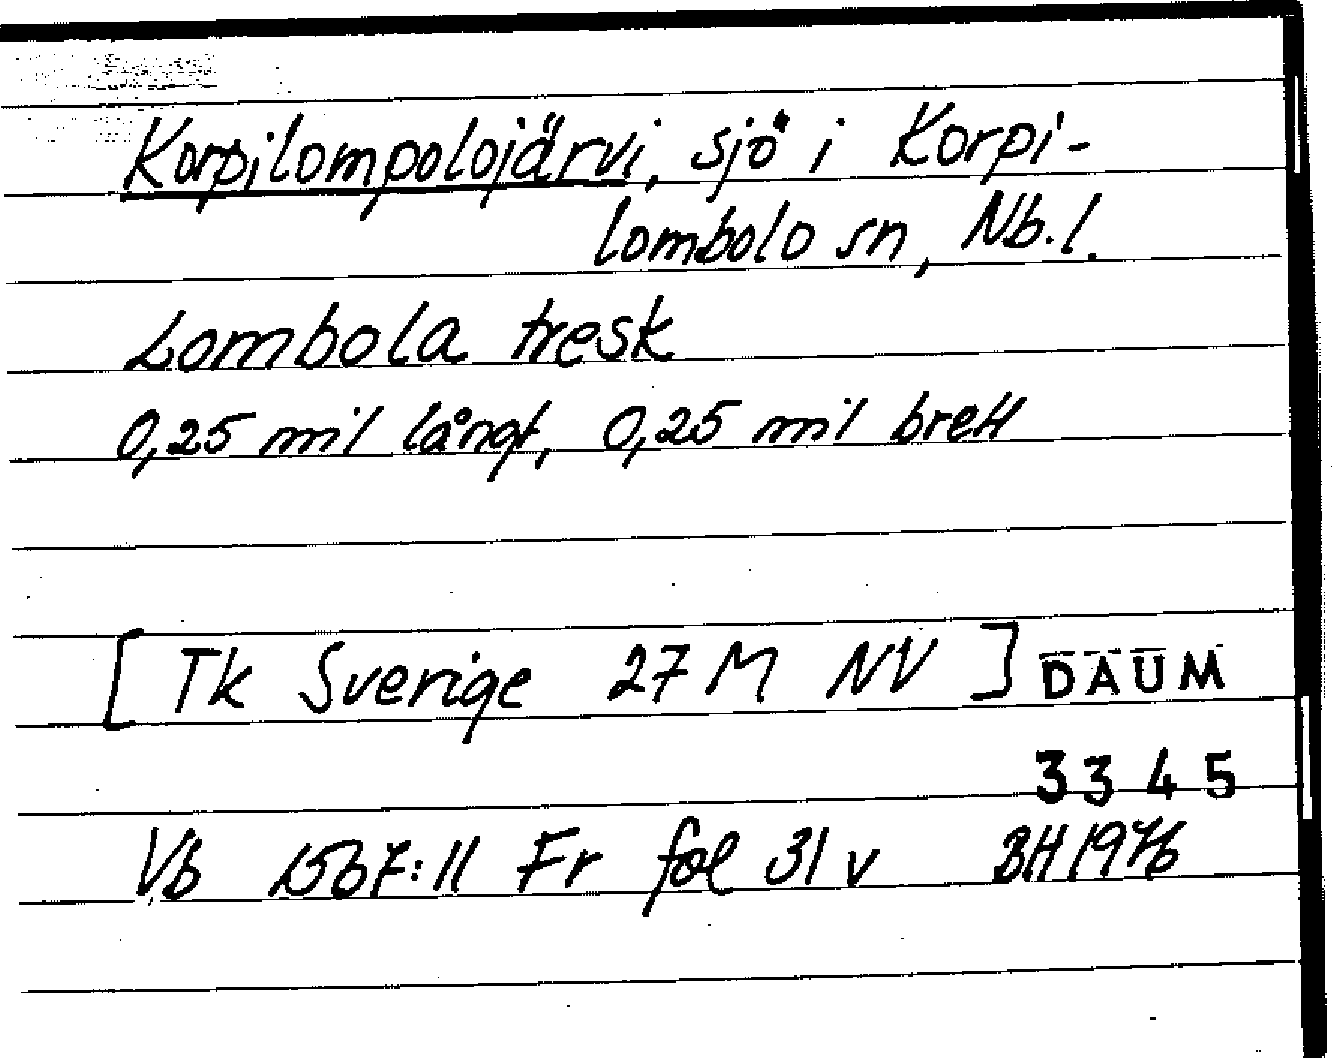 Korpilompolojärvi, sjö i Korpi-
lombolo sn, Nb.l.
Lombola tresk
0,25 mil långt, 0,25 mil brett
[Tk Sverige 27 M NV] DAUM
3345
Vb 1567:11 Fr fol 31 v BH 1976